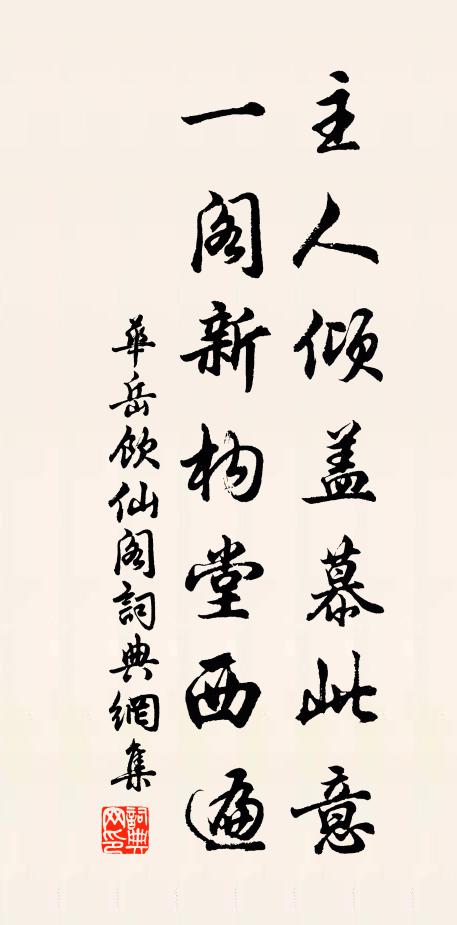 主人倾盖慕此意
一阁新构堂西遍
華岳飲仙阁詞典網集
詞典网印